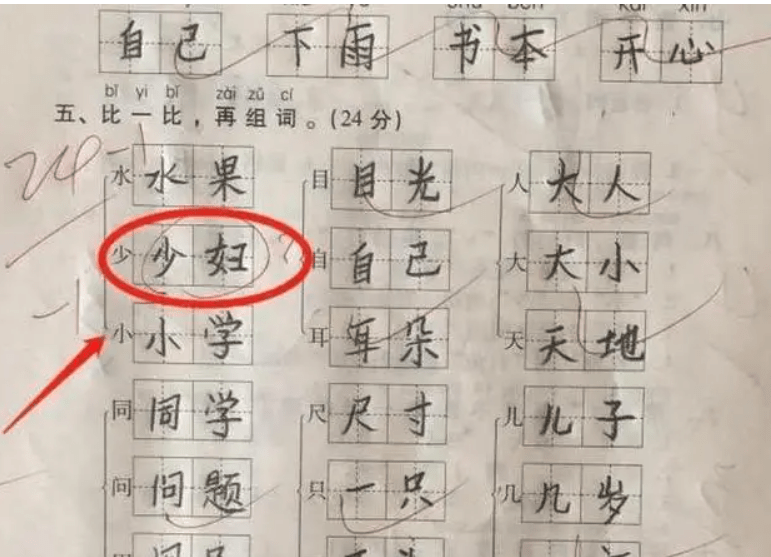 自己 下雨 书本 开心
bǐ yi bǐ zài zǔ cí
五、比一比，再组词。(24分)
24-1
水 水果 目 目光 人 大人
少 少妇 自 自己 大 大小
-1
小 小学 耳 耳朵 天 天地
同 同学 尺 尺寸 儿 儿子
问 问题 只 一只 几 几岁